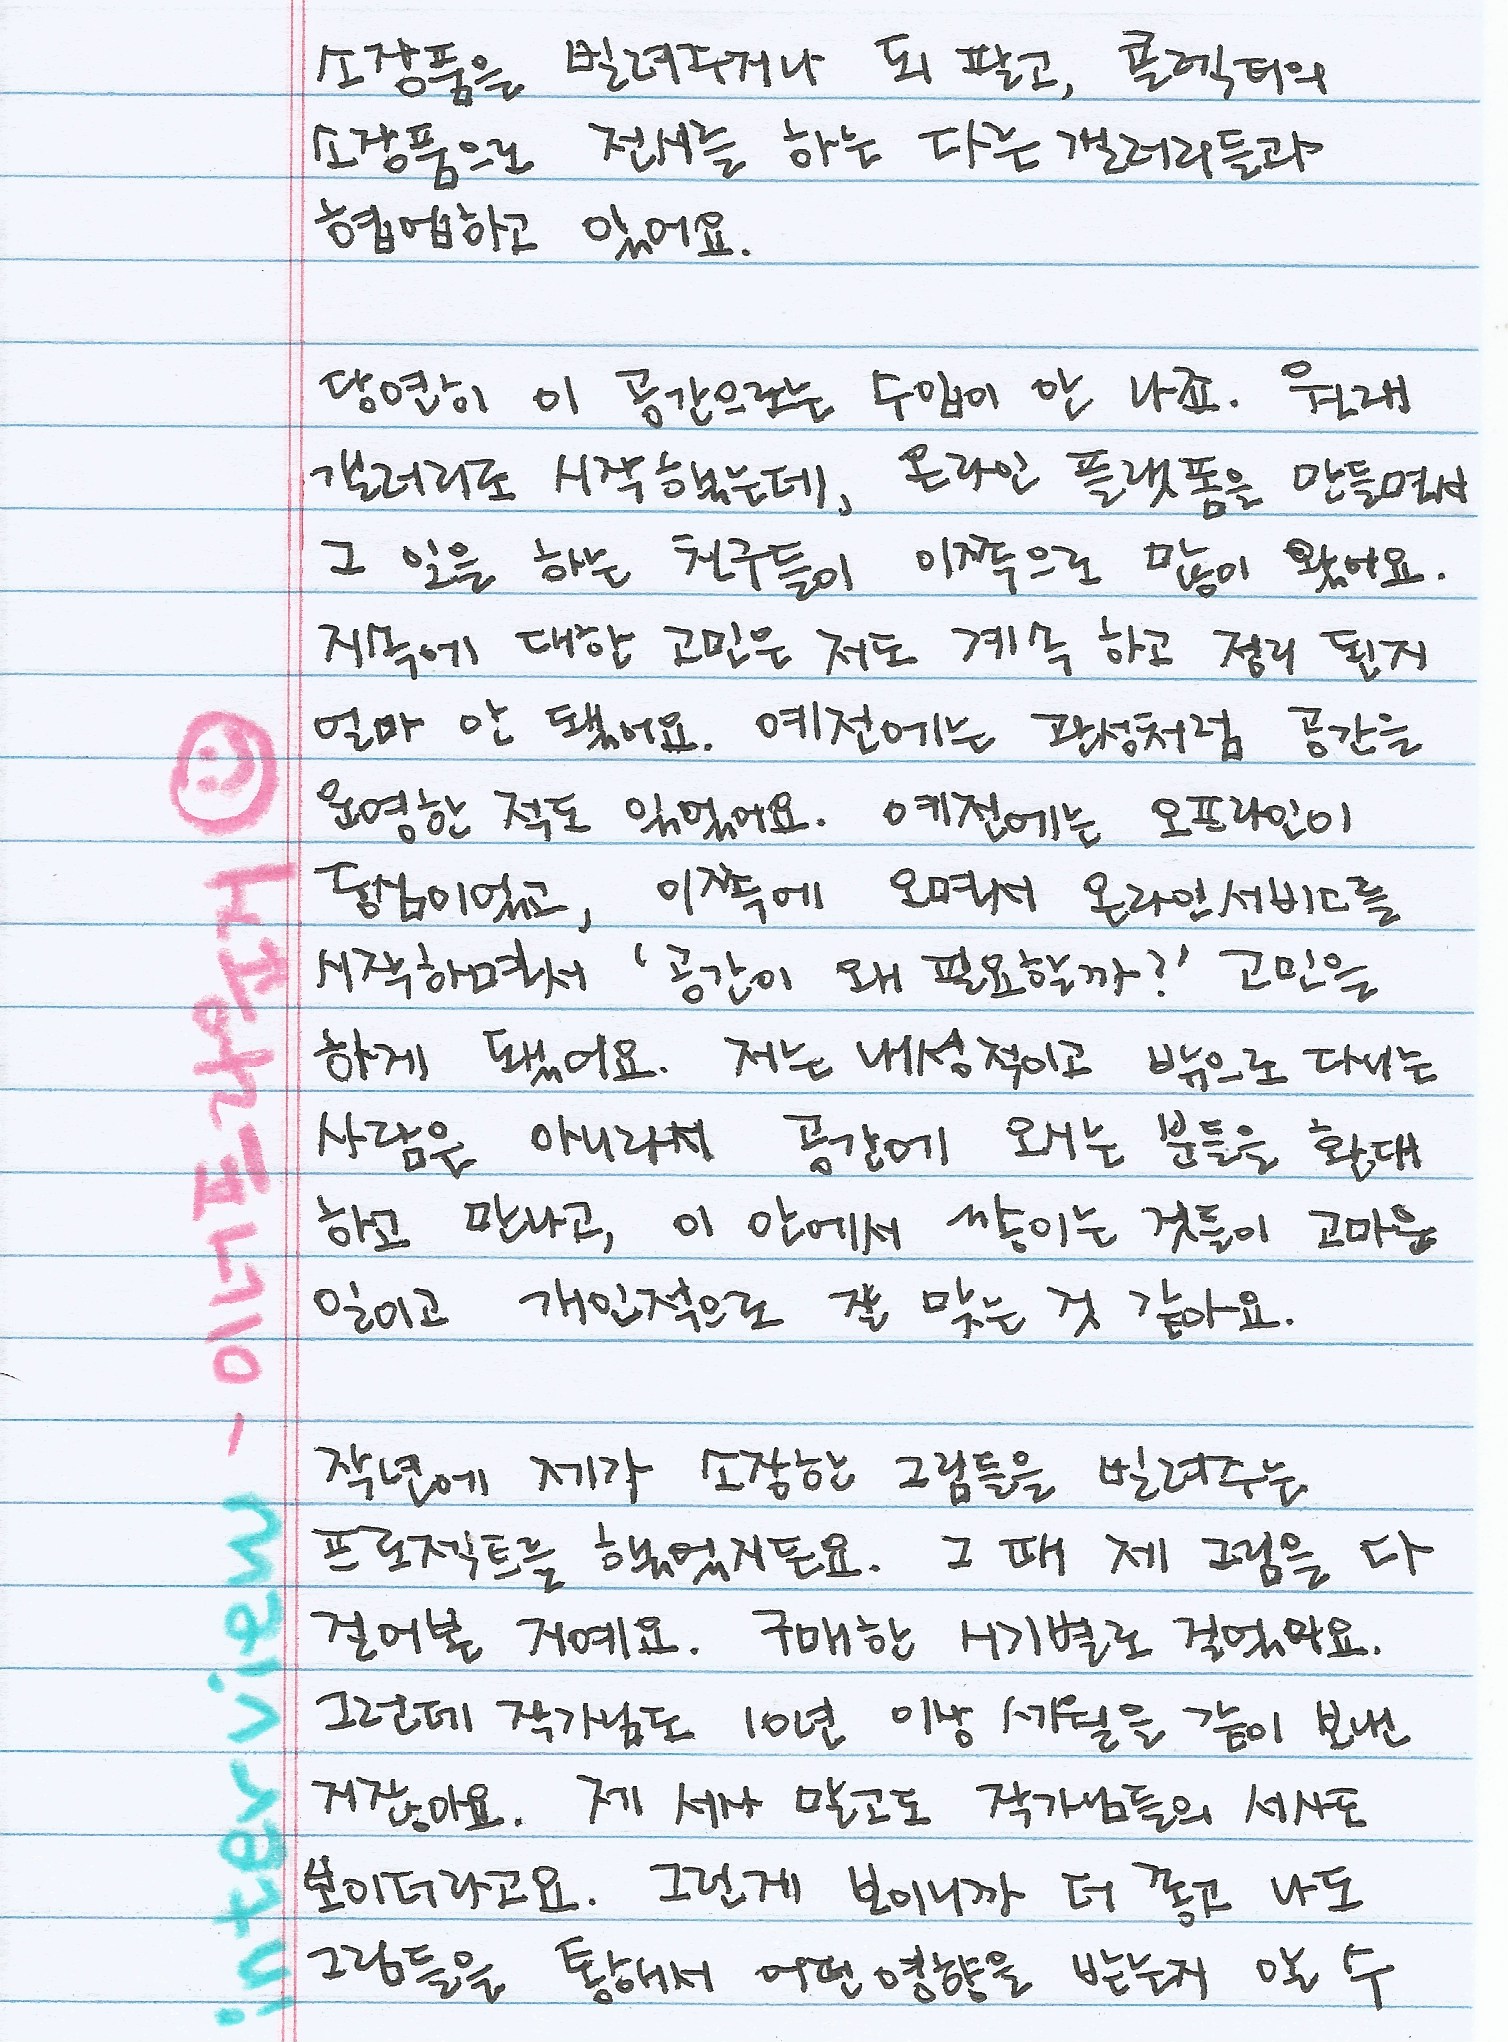 소장품을 빌려주거나 되 팔고, 콜렉터의
소장품으로 전시를 하는 다른 갤러리들과
협업하고 있어요.
당연히 이 공간으로는 수입이 안 나죠. 원래
갤러리로 시작했는데, 온라인 플랫폼을 만들면서
그 일을 하는 친구들이 이쪽으로 많이 왔어요.
지속에 대한 고민은 저도 계속 하고 정리 된지
얼마 안 됐어요. 예전에는 관성처럼 공간을
운영한 적도 있었어요. 예전에는 오프라인이
중심이었고, 이쪽에 오면서 온라인서비스를
시작하면서 '공간이 왜 필요할까?' 고민을
하게 됐어요. 저는 내성적이고 밖으로 다니는
사람은 아니라서 공간에 오시는 분들을 환대
하고 만나고, 이 안에서 쌓이는 것들이 고마운
일이고 개인적으로 잘 맞는 것 같아요.
작년에 제가 소장한 그림들을 빌려주는
프로젝트를 했었거든요. 그 때 제 그림을 다
걸어본 거예요. 구매한 시기별로 걸었어요.
그런데 작가님도 10년 이상 세월을 같이 보낸
거잖아요. 제 서사 말고도 작가님들의 서사도
보이더라고요. 그런게 보이니까 더 좋고 나도
그림들을 통해서 어떤 영향을 받는지 알 수
interview - 이너프라운지